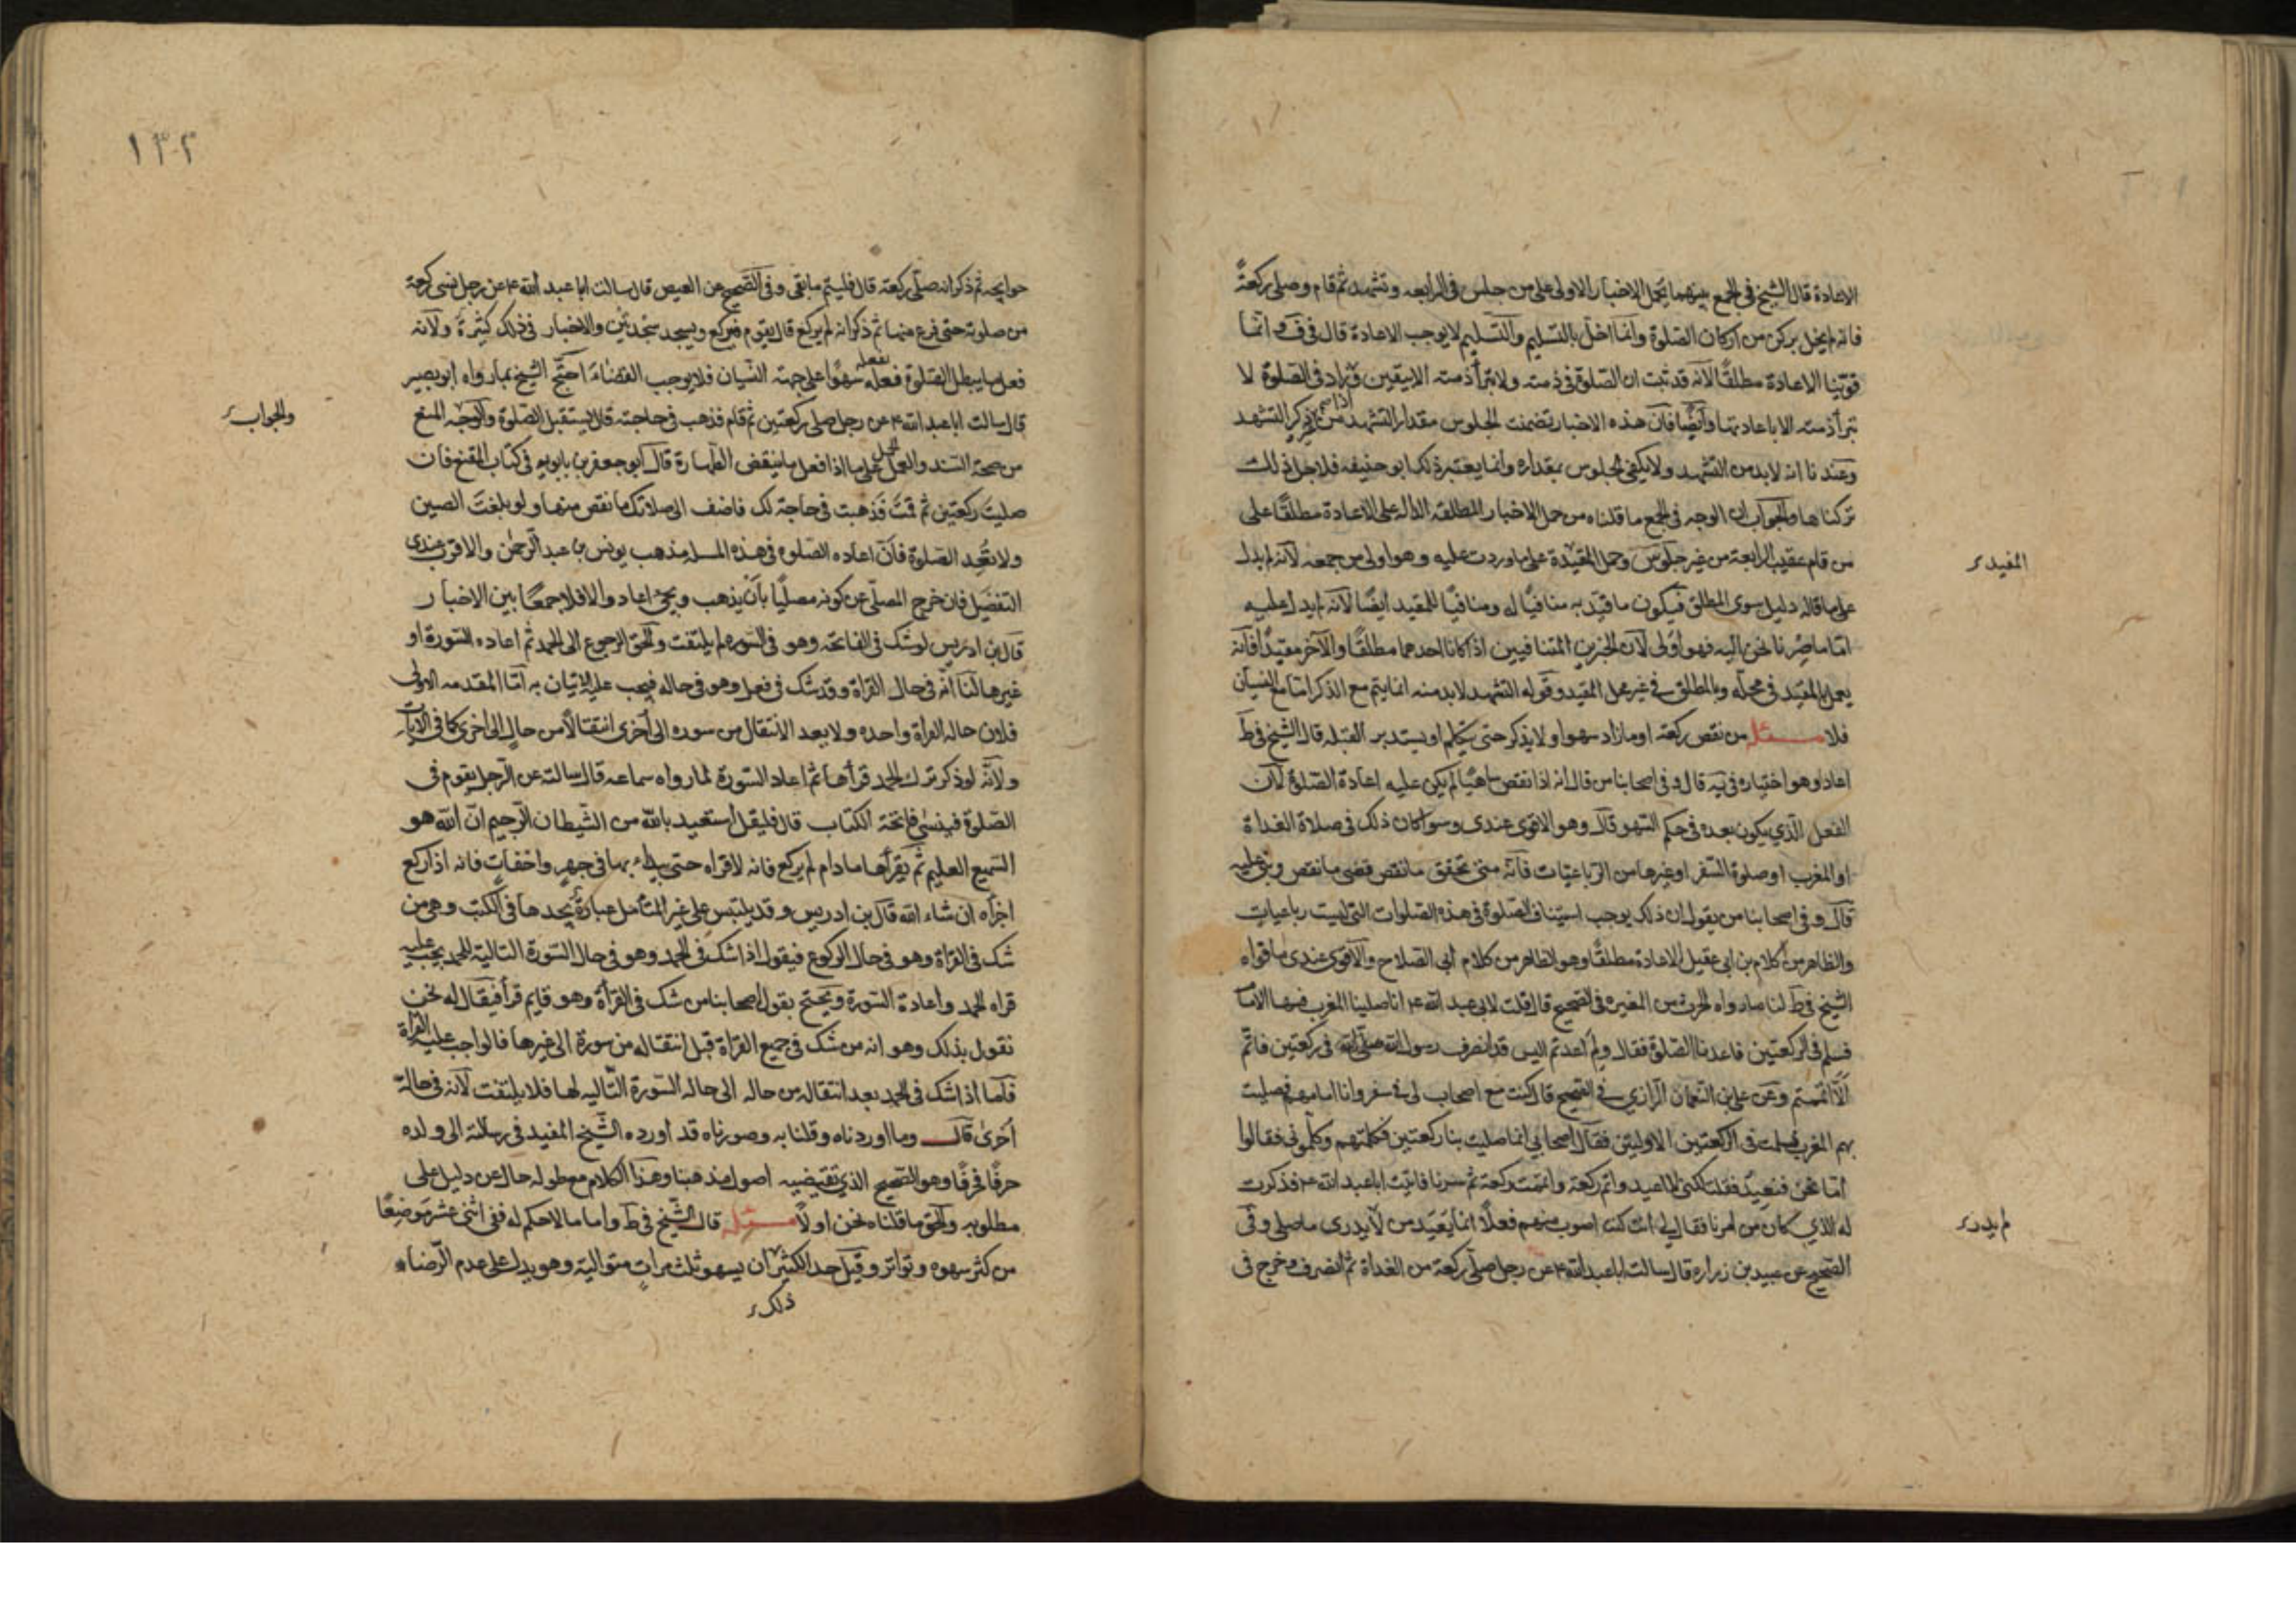 الاعادة قال الشيخ في الجمع بينهما يحمل الاخبار الاولى على من جلس في الرابعه وتشهد ثم قام وصلى ركعةً
فانه لم يخل بركن من اركان الصلوة وانما اخل بالتسليم والتسليم لا يوجب الاعادة قال في ف وانما
قوّينا الاعادة مطلقًا لانه قد ثبت ان الصلوة في ذمته ولا تبرأ ذمته الا بيقين وزاد في الصلوة لا
تبرأ ذمته الا باعادتها وايضًا فان هذه الاخبار تضمنت الجلوس مقدار التشهد من ذكر التشهد
وعندنا انه لا بد من التشهد ولا يكفي الجلوس بمقداره وانما يعتبر ذلك ابو حنيفه فلاجل ذلك
تركناها والجواب ان الوجه في الجمع ما قلناه من حمل الاخبار المطلقه الداله على الاعادة مطلقًا على
من قام عقيب الرابعة من غير جلوس وحمل المقيّدة على ما وردت عليه وهو اولى من جمعه لانه لم يدل
المفيد
على ما قاله دليل سوى المطلق فيكون ما قيّد به منافيًا له ومنافيًا للمقيد ايضًا لانه لم يدل عليه
امّا ما صرنا نحن اليه فهو اولى لان الخبرين المتنافيين اذا كانا احدهما مطلقًا والآخر مقيدًا فانه
يعمل بالمقيد في محله وبالمطلق في غير محل المقيد وقوله التشهد لا بد منه انما يتم مع الذكر اما مع النسيان
فلا مسئله من نقص ركعة او ما زاد سهوا ولا يذكر حتى يتكلم او يستدبر القبله قال الشيخ في ط
اعاد وهو اختياره في يه قال وفي اصحابنا من قال انه اذا نقص ساهيًا لم يكن عليه اعادة الصلوة لان
الفعل الذي يكون بعده في حكم السهو قال وهو الاقوى عندي وسوا كان ذلك في صلاة الغداة
او المغرب او صلوة السفر او غيرها من الرباعيّات فانه متى تحقق ما نقص قضى ما نقص وبنى عليه
قال وفي اصحابنا من يقول ان ذلك يوجب استيناف الصلوة في هذه الصلوات التي ليست رباعيات
والظاهر من كلام بن ابي عقيل الاعادة مطلقًا وهو الظاهر من كلام ابي الصلاح والاقوى عندي ما قواه
الشيخ في ط لنا ما رواه الحرث بن المغيره في الصحيح قال قلت لابي عبد الله ع انا صلينا المغرب فسها الامام
فسلم في الركعتين فاعدنا الصلوة فقال ولم اعدتم اليس قد انصرف رسول الله صلى الله في ركعتين فاتم
الّا اتممتم وعن علي بن النعمان الرازي في الصحيح قال كنت مع اصحاب لي في سفر وانا امامهم فصليت
بهم المغرب فسلمت في الركعتين الاوليتين فقال اصحابي انما صليت بنا ركعتين فكلمتهم وكلّموني فقالوا
امّا نحن فنعيد فقلت لكني لا اعيد واتم ركعة واتممت ركعة ثم سرنا فاتيت ابا عبد الله ع فذكرت
له الذي كان من امرنا فقال لي انت كنت اصوب منهم فعلًا انما يعيد من لا يدري ما صلى وفي
لم يدر
الصحيح عن عبيد بن زراره قال سالت ابا عبد الله ع عن رجل صلّى ركعة من الغداة ثم انصرف وخرج في
١٣٢
حوايجه ثم ذكر انه صلّى ركعة قال فليتم ما بقى وفي الصحيح عن العيص قال سالت ابا عبد الله ع عن رجل نسي ركعة
من صلوته حتى فرغ منها ثم ذكر انه لم يركع قال يقوم فيركع ويسجد سجدتين والاخبار في ذلك كثيرة ولانه
فعل ما يبطل الصلوة فعله سهوًا على جهة النسيان فلا يوجب القضاء احتج الشيخ بما رواه ابو بصير
قال سالت ابا عبد الله ع عن رجل صلى ركعتين ثم قام فذهب في حاجته قال يستقبل الصلوة والوجه المنع
والجواب
من صحة السند والحمل على ما اذا فعل ما ينقض الطهارة قال ابو جعفر بن بابويه في كتاب المقنع فان
صليت ركعتين ثم قمت فذهبت في حاجة لك فاضف الى صلاتك ما نقص منها ولو بلغت الصين
ولا تعد الصلوة فان اعاده الصلوه في هذه المسله مذهب يونس بن عبد الرحمن والاقرب عندي
التفصيل فان خرج المصلّي عن كونه مصليًا بان يذهب ويجئ اعاد والا فلا جمعًا بين الاخبار
قال بن ادريس لو شك في الفاتحه وهو في السوره لم يلتفت والحق الرجوع الى الحمد ثم اعاده السورة او
غيرها لنا انه في حال القراة وقد شك في فعل وهو في حاله فيجب عليه الاتيان به امّا المقدمه الاولى
فلان حاله القراة واحده ولا يعد الانتقال من سوره الى اخرى انتقالًا من حال الى اخرى كما في الايات
ولانه لو ذكر ترك الحمد قرأها ثم اعاد السورة لما رواه سماعه قال سالته عن الرجل يقوم في
الصلوة فينسى فاتحة الكتاب قال فليقل استعيد بالله من الشيطان الرجيم ان الله هو
السميع العليم ثم يقرأها ما دام لم يركع فانه لا قراه حتى يبدا بها في جهر واخفات فانه اذا ركع
اجزأه ان شاء الله قال بن ادريس وقد يلتبس على غير المتأمل عبارة يجدها في الكتب وهي من
شك في القراة وهو في حال الركوع فيقول اذا شك في الحمد وهو في حال السورة التالية للحمد يجب عليه
قراه الحمد واعادة السورة ويحتج بقول اصحابنا من شك في القراة وهو قايم قرأ فيقال له نحن
نقول بذلك وهو انه من شك في جميع القراة قبل انتقاله من سورة الى غيرها فالواجب عليه القراة
فامّا اذا شك في الحمد بعد انتقاله من حاله الى حاله السورة التاليه لها فلا يلتفت لانه في حالة
اخرى قال وما اوردناه وقلنا به وصورناه قد اورده الشيخ المفيد في رسالته الى ولده
حرفًا فحرفًا وهو الصحيح الذي تقتضيه اصول مذهبنا وهذا الكلام مع طوله خال عن دليل على
مطلوبه والحق ما قلناه نحن اولًا مسئله قال الشيخ في ط واما ما لا حكم له ففي اثنى عشر موضعًا
من كثر سهوه وتواتر وقيل حد الكثير ان يسهو ثلث مرات متوالية وهو يدل على عدم الرضاء
ذلك